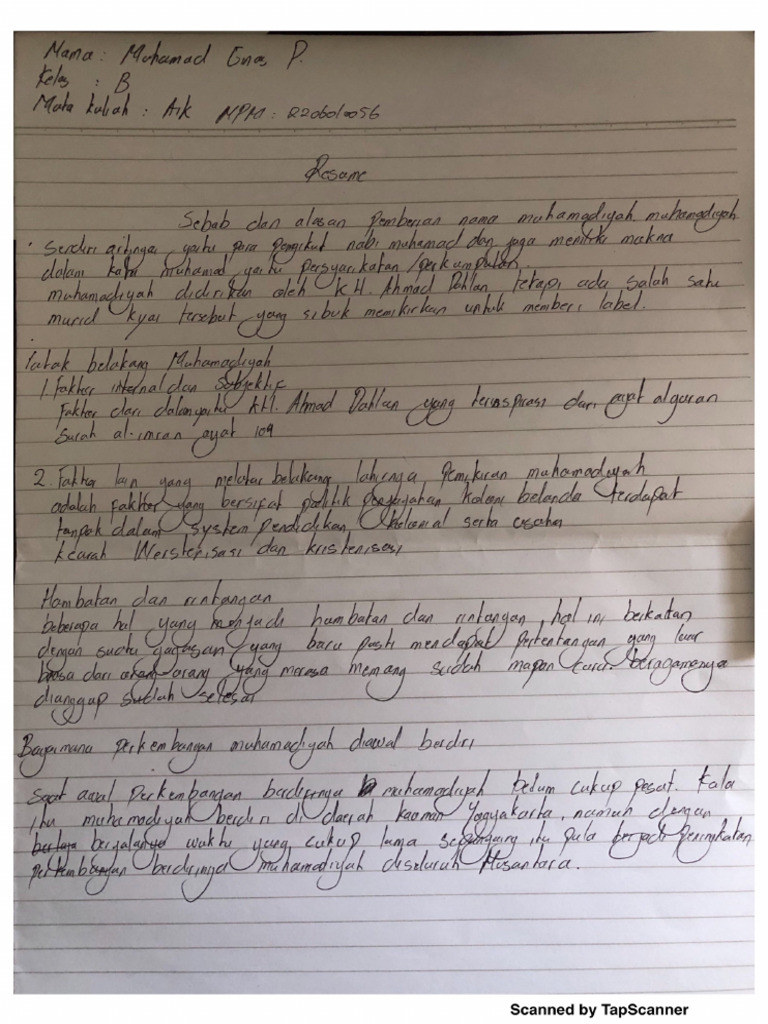 Nama : Muhamad P.
Kelas : B
Mata kuliah : Aik NPM :
Resume
Sebab dan alasan pemberian nama muhamadiyah. muhamadiyah
Sendiri artinya yaitu para pengikut nabi muhamad dan juga memiliki makna
dalam kata muhamad yaitu persyarikatan/perkumpulan.
muhamadiyah didirikan oleh KH. Ahmad Dahlan tetapi ada salah satu
murid kyai tersebut yang sibuk memikirkan untuk memberi label.
belakang Muhamadiyah
1. Faktor internal dan Subjektif
Faktor dari dalam yaitu KH. Ahmad Dahlan yang terinspirasi dari ayat alquran
Surah al-imran ayat 109
2. Faktor lain yang melatar belakang lahirnya Pemikiran muhamadiyah
adalah faktor yang bersifat politik penjajahan belanda terdapat
tanpak dalam system pendidikan kolonial serta usaha
kearah dan kristenisasi
Hambatan dan rintangan
beberapa hal yang menjadi hambatan dan rintangan, hal ini berkaitan
dengan suatu gagasan yang baru pasti mendapat pertentangan yang luar
biasa dari orang yang merasa memang sudah mapan beragamanya
dianggap sudah selesai
Bagaimana perkembangan muhamadiyah diawal berdiri
Saat awal perkembangan berdirinya muhamadiyah belum cukup pesat. Kala
itu muhamadiyah berdiri di daerah kauman Yogyakarta, namun dengan
waktu yang cukup lama itu pula peningkatan
perkembangan berdirinya muhamadiyah diseluruh Nusantara.
Scanned by TapScanner